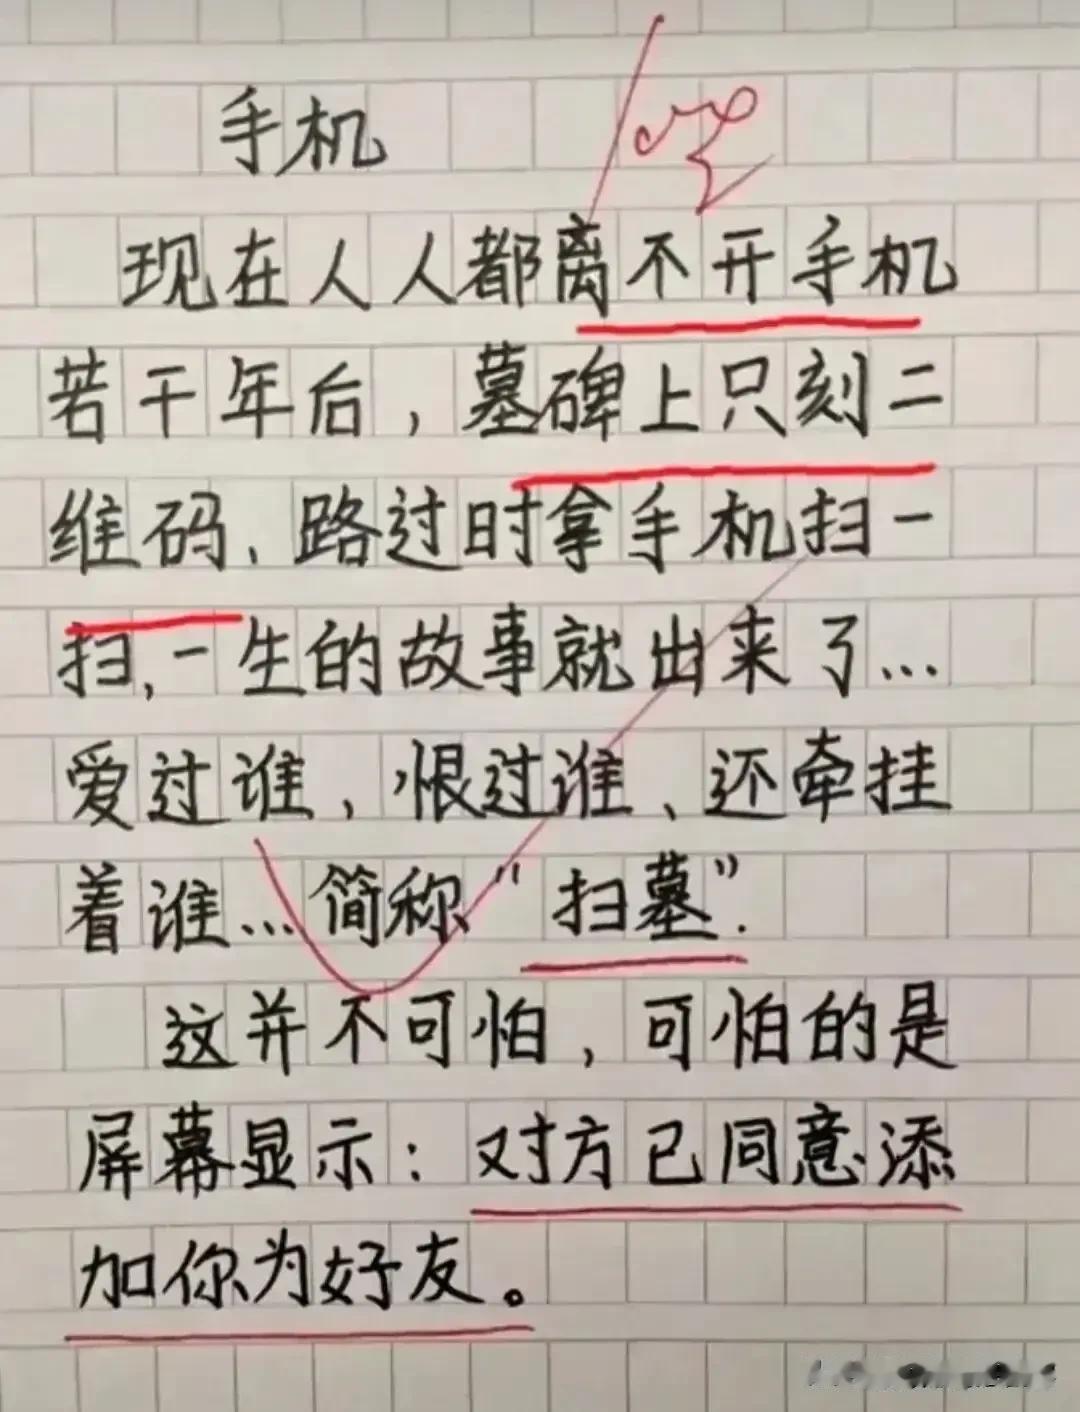 手机
现在人人都离不开手机
若干年后,墓碑上只刻二
维码、路过时拿手机扫一
扫,一生的故事就出来了...
爱过谁,恨过谁、还牵挂
着谁...简称"扫墓".
这并不可怕,可怕的是
屏幕显示:对方已同意添
加你为好友。